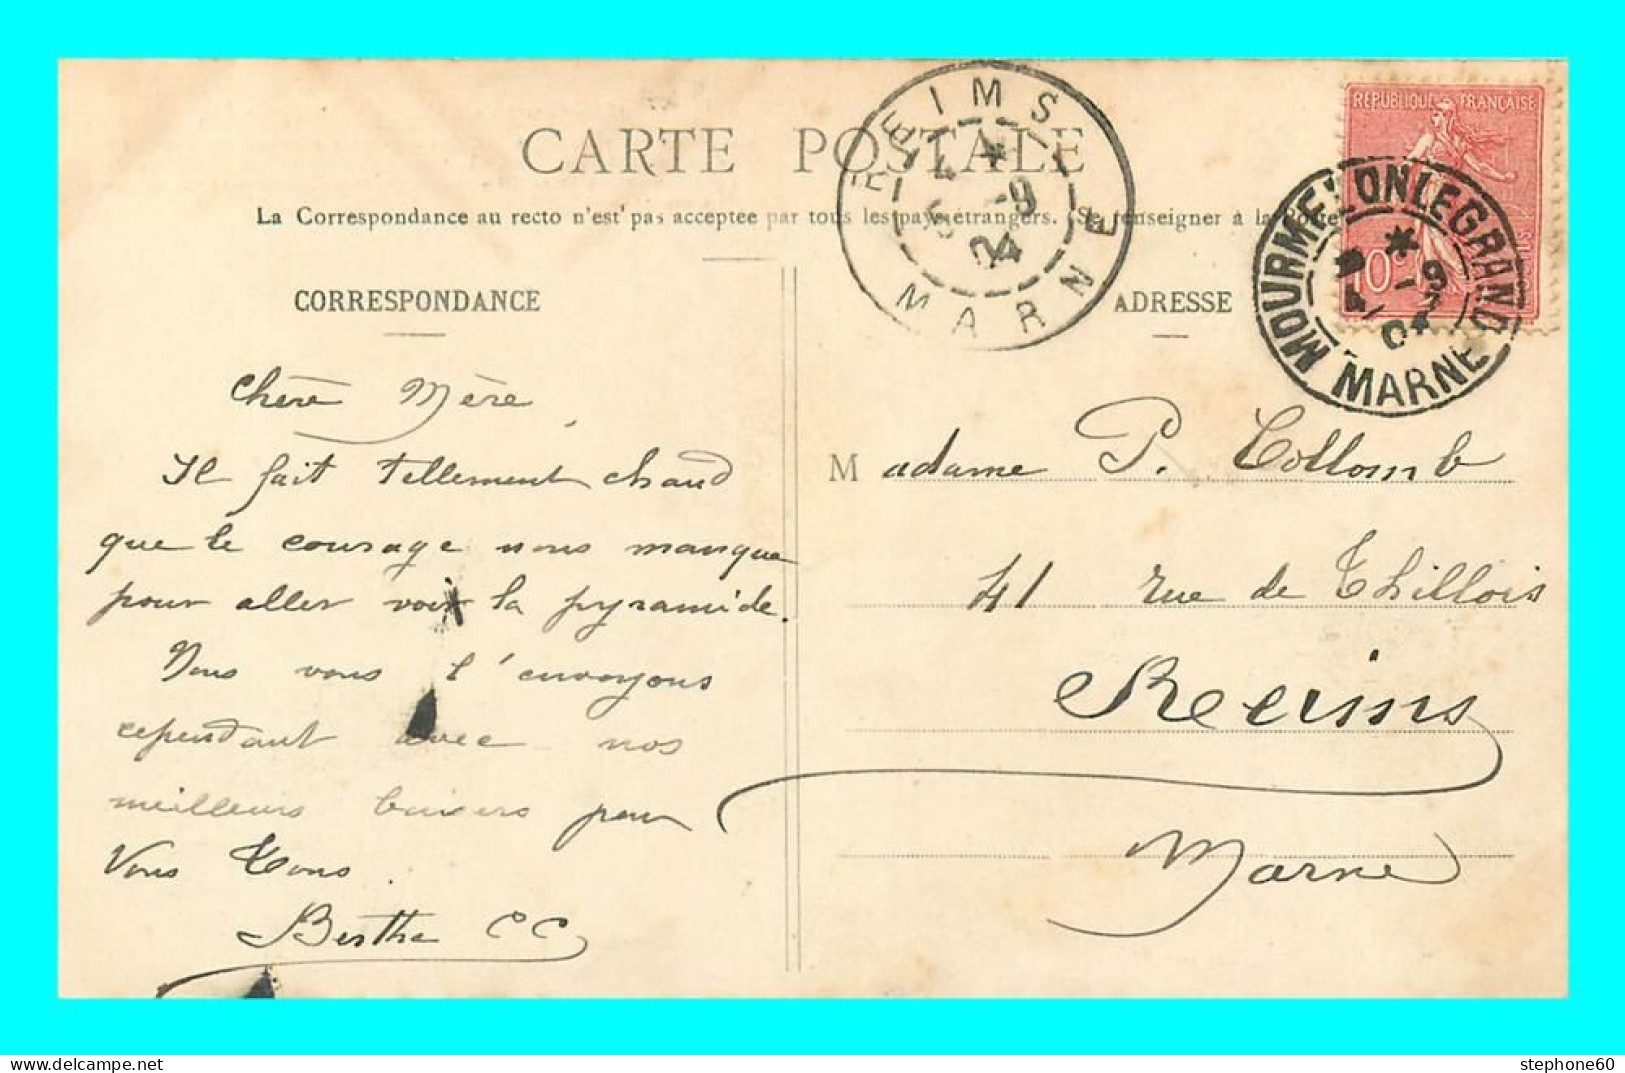 CARTE POSTALE
La Correspondance au recto n'est pas acceptée par tous les pays étrangers. (Se renseigner à la Poste
CORRESPONDANCE
ADRESSE
REIMS
MARNE
04
REPUBLIQUE FRANÇAISE
10
MOURMELON LE GRAND
MARNE
04
Chère Mère,
Il fait tellement chaud
que le courage nous manque
pour aller voir la pyramide.
Nous vous l'envoyons
cependant avec nos
meilleurs baisers pour
Vous Tous.
Berthe CC
Madame P. Collomb
41 rue de Thillois
Reims
Marne
stephone60